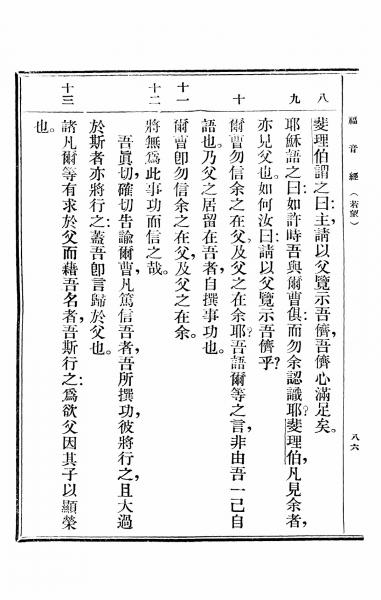 福音經（若望）
八六
八
斐理伯謂之曰:主,請以父覽示吾儕,吾儕心滿足矣。
九
耶穌語之曰:如許時吾與爾曹俱,而勿余認識耶?斐理伯,凡見余者,
亦見父也。如何汝曰:請以父覽示吾儕乎?
十
爾曹勿信余之在父,及父之在余耶?吾語爾等之言,非由吾一己自
語也。乃父之居留在吾者,自撰事功也。
十一
爾曹卽勿信余之在父,及父之在余。
十二
將無爲此事功而信之哉。
吾眞切,確切告諭爾曹,凡篤信吾者,吾所撰功,彼將行之,且大過
於斯者亦將行之:蓋吾卽言歸於父也。
十三
諸凡爾等有求於父而藉吾名者,吾斯行之:爲欲父因其子以顯榮
也。